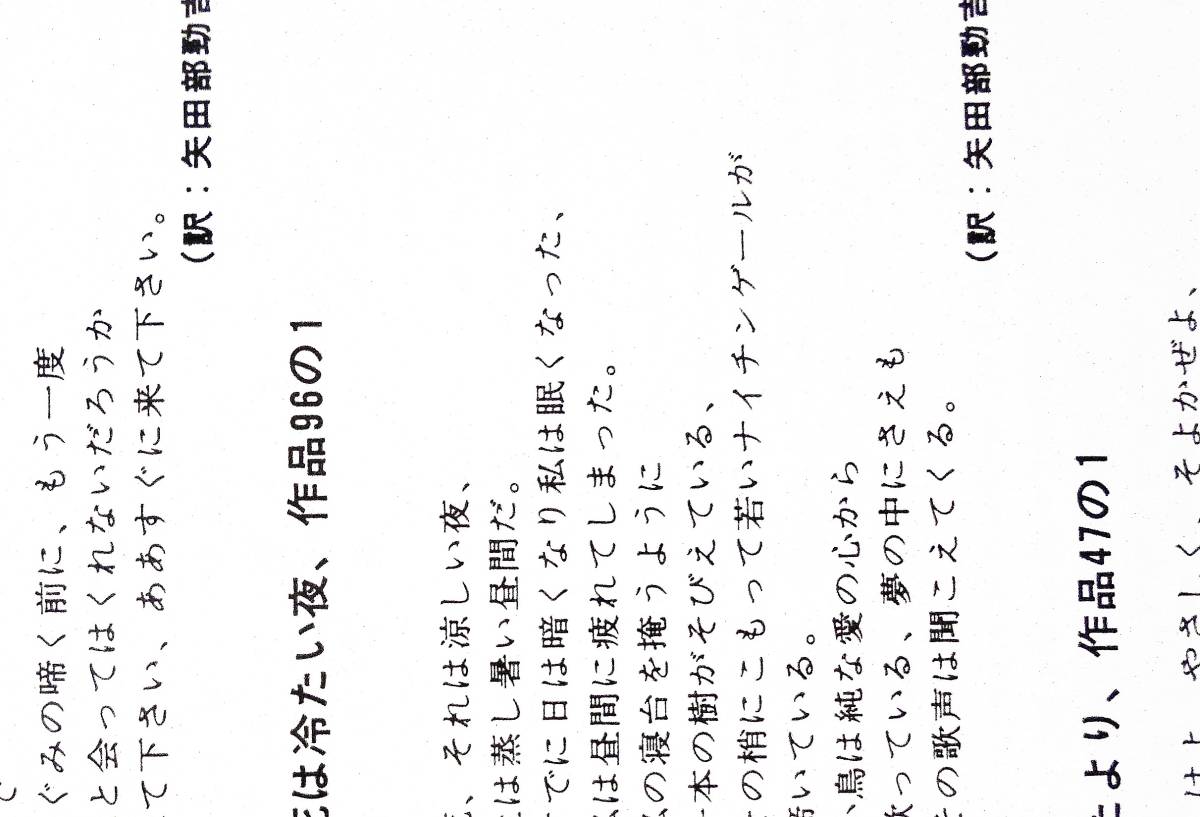 ぐみの啼く前に、もう一度
と会ってはくれないだろうか
て下さい、ああすぐに来て下さい。
(訳：矢田部勁吉
は冷たい夜、作品96の1
、それは涼しい夜、
は蒸し暑い昼間だ。
でに日は暗くなり私は眠くなった、
は昼間に疲れてしまった。
の寝台を掩うように
本の樹がそびえている、
の梢にこもって若いナイチンゲールが
いている。
鳥は純な愛の心から
歌っている、夢の中にさえも
の歌声は聞こえてくる。
(訳：矢田部勁吉
より、作品47の1
はよ やさしく、そよかぜよ、